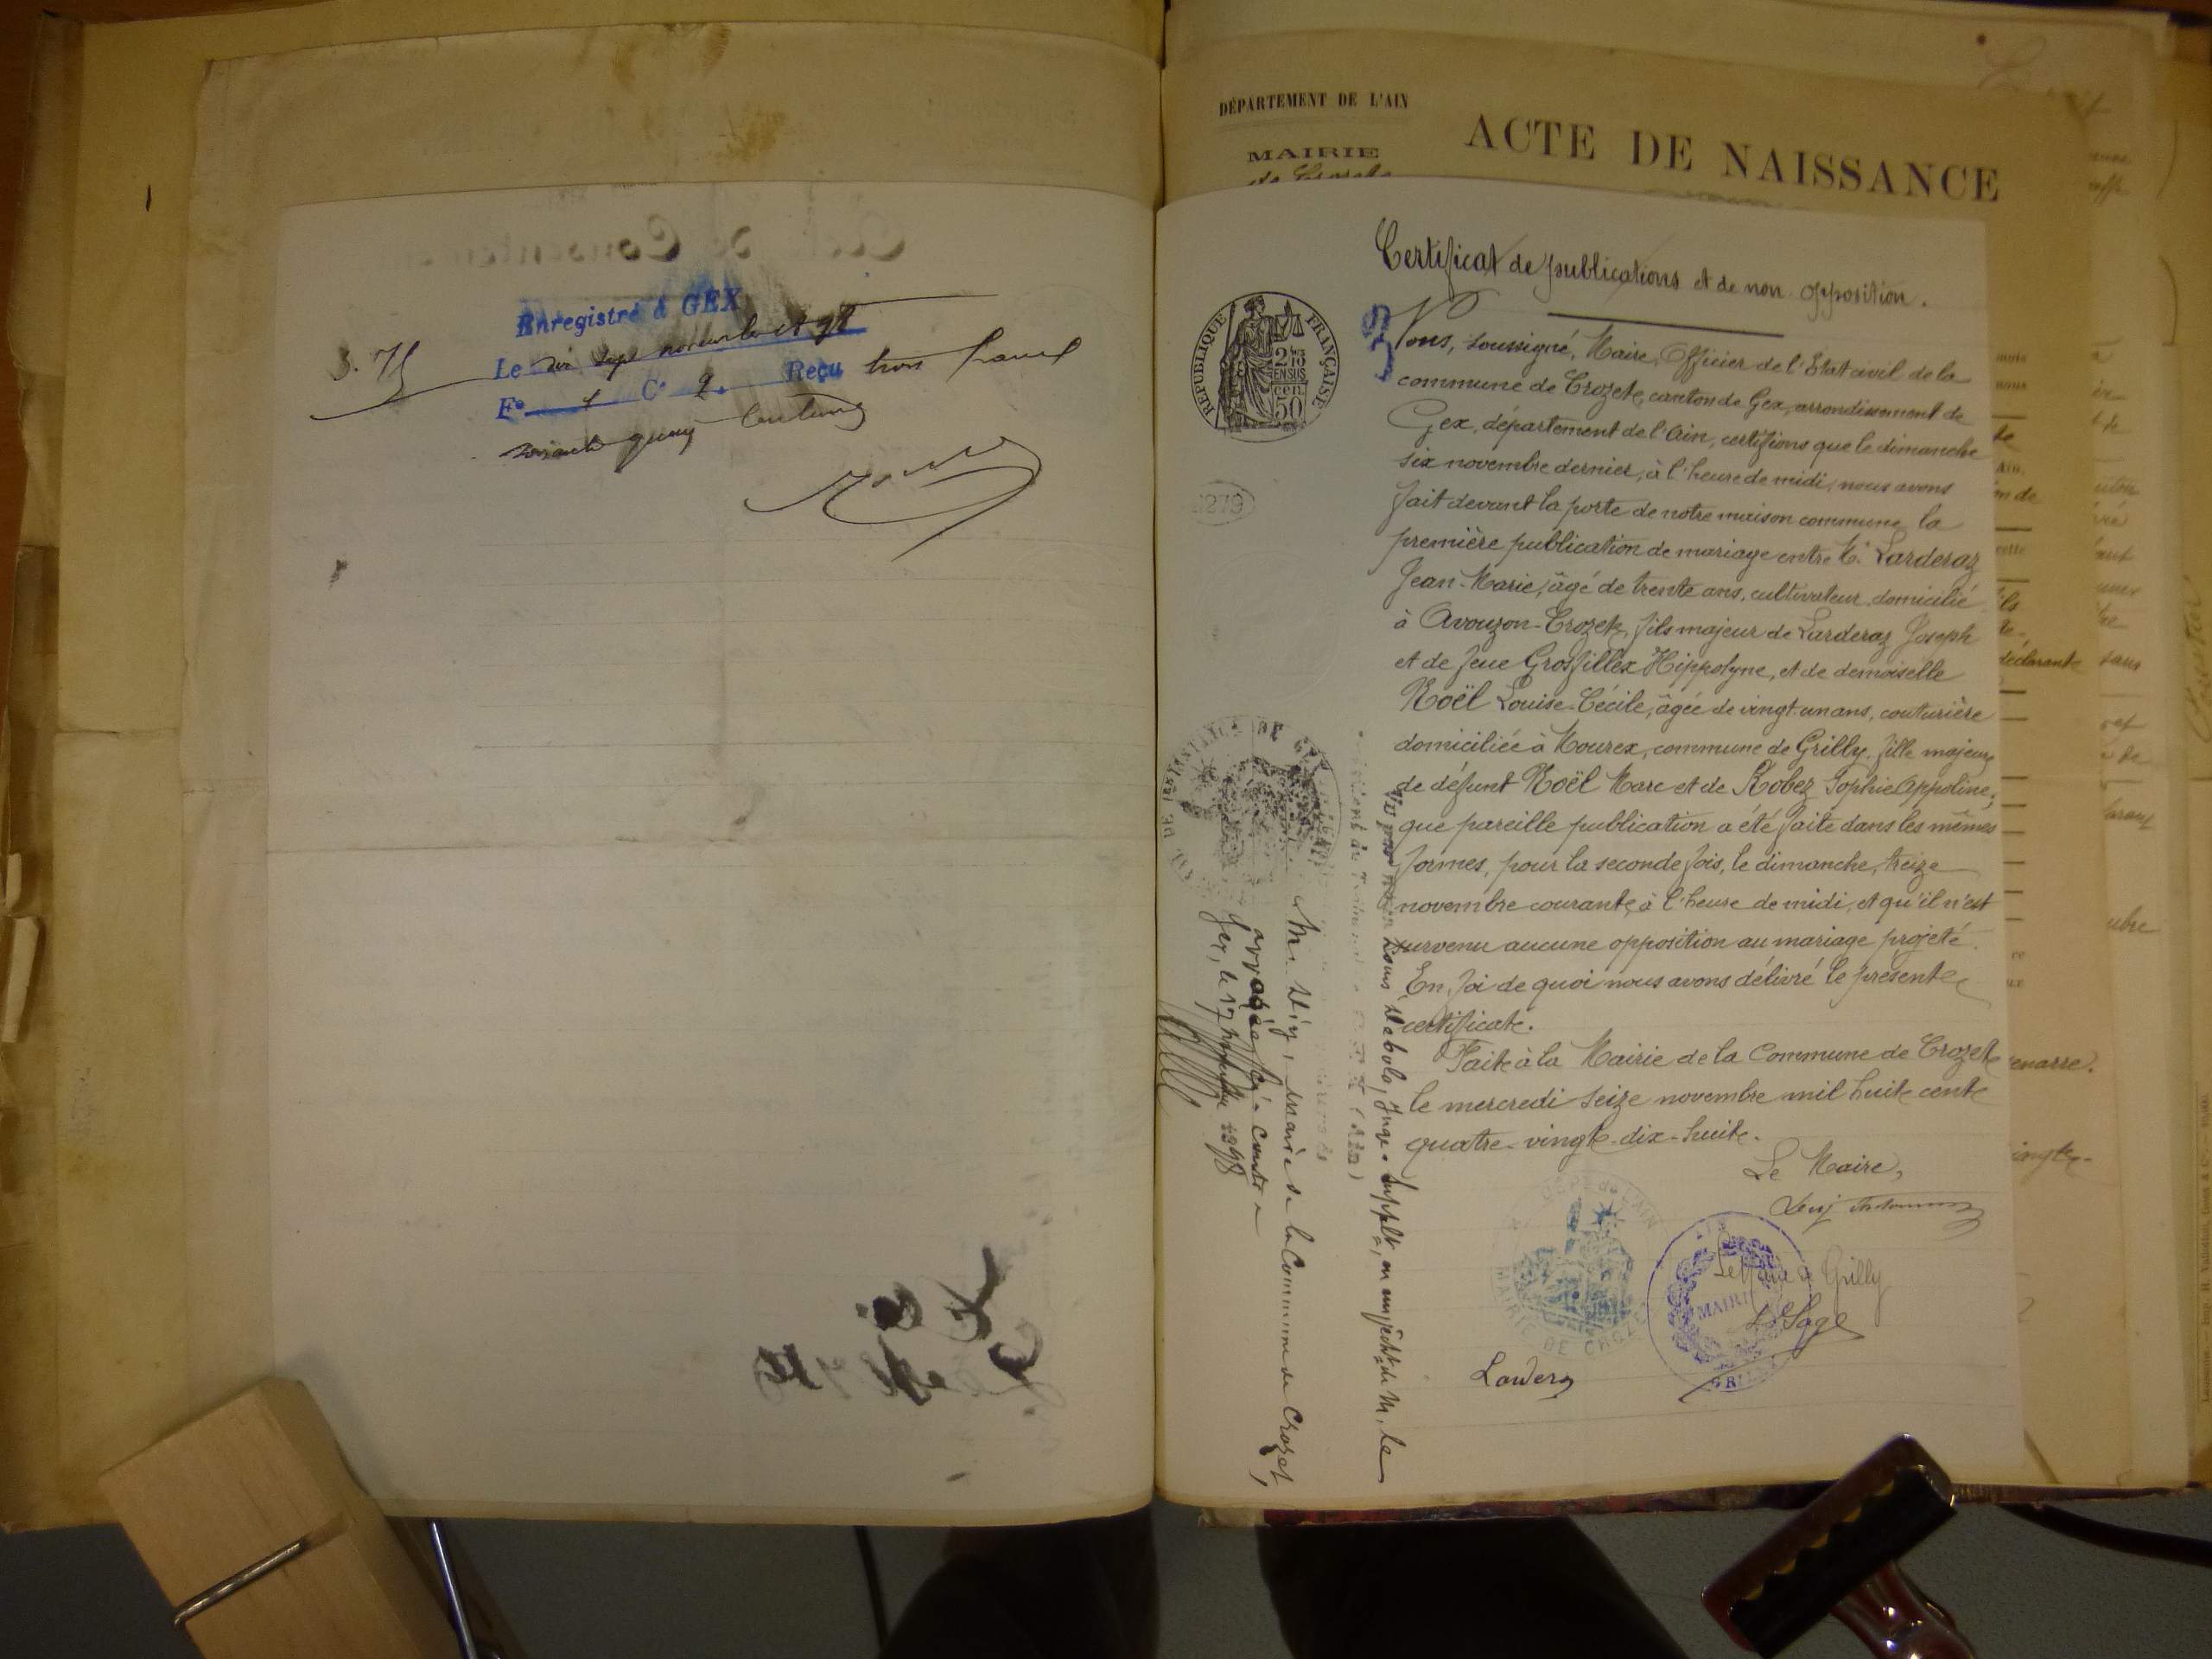 Enregistré à GEX
Le dix sept novembre 98
3.75
F° 1 C° 2. Reçu trois francs
soixante quinze centimes
DÉPARTEMENT DE L'AIN
MAIRIE
ACTE DE NAISSANCE
Certificat de publications et de non opposition.
RÉPUBLIQUE FRANÇAISE
2/10 EN SUS
50 cen
279
Nous, soussigné, Maire, Officier de l'Etat civil de la
commune de Crozet, canton de Gex, arrondissement de
Gex, département de l'Ain, certifions que le dimanche
six novembre dernier, à l'heure de midi, nous avons
fait devant la porte de notre maison commune la
première publication de mariage entre Mr Larderaz
Jean-Marie, âgé de trente ans, cultivateur domicilié
à Avouzon-Crozet, fils majeur de Larderaz Joseph
et de feue Grosfillex Hippolyne, et de demoiselle
Noël Louise-Cécile, âgée de vingt-un ans, couturière
domiciliée à Mourex, commune de Grilly, fille majeure
de défunt Noël Marc et de Robez Sophie Appoline;
que pareille publication a été faite dans les mêmes
formes, pour la seconde fois, le dimanche, treize
novembre courant, à l'heure de midi, et qu'il n'est
survenu aucune opposition au mariage projeté.
En foi de quoi nous avons délivré le présent
certificat.
Fait à la Mairie de la Commune de Crozet
le mercredi seize novembre mil huit cent
quatre-vingt-dix-huit.
Le Maire,
Le Maire de Grilly
MAIRIE
MAIRIE DE CROZET
Vu par nous
Juge suppl.t, en empêch.t de M. le
maire de la Commune de Crozet,
apposée ci-contre
Gex, le 17 novembre 1898
déclarante